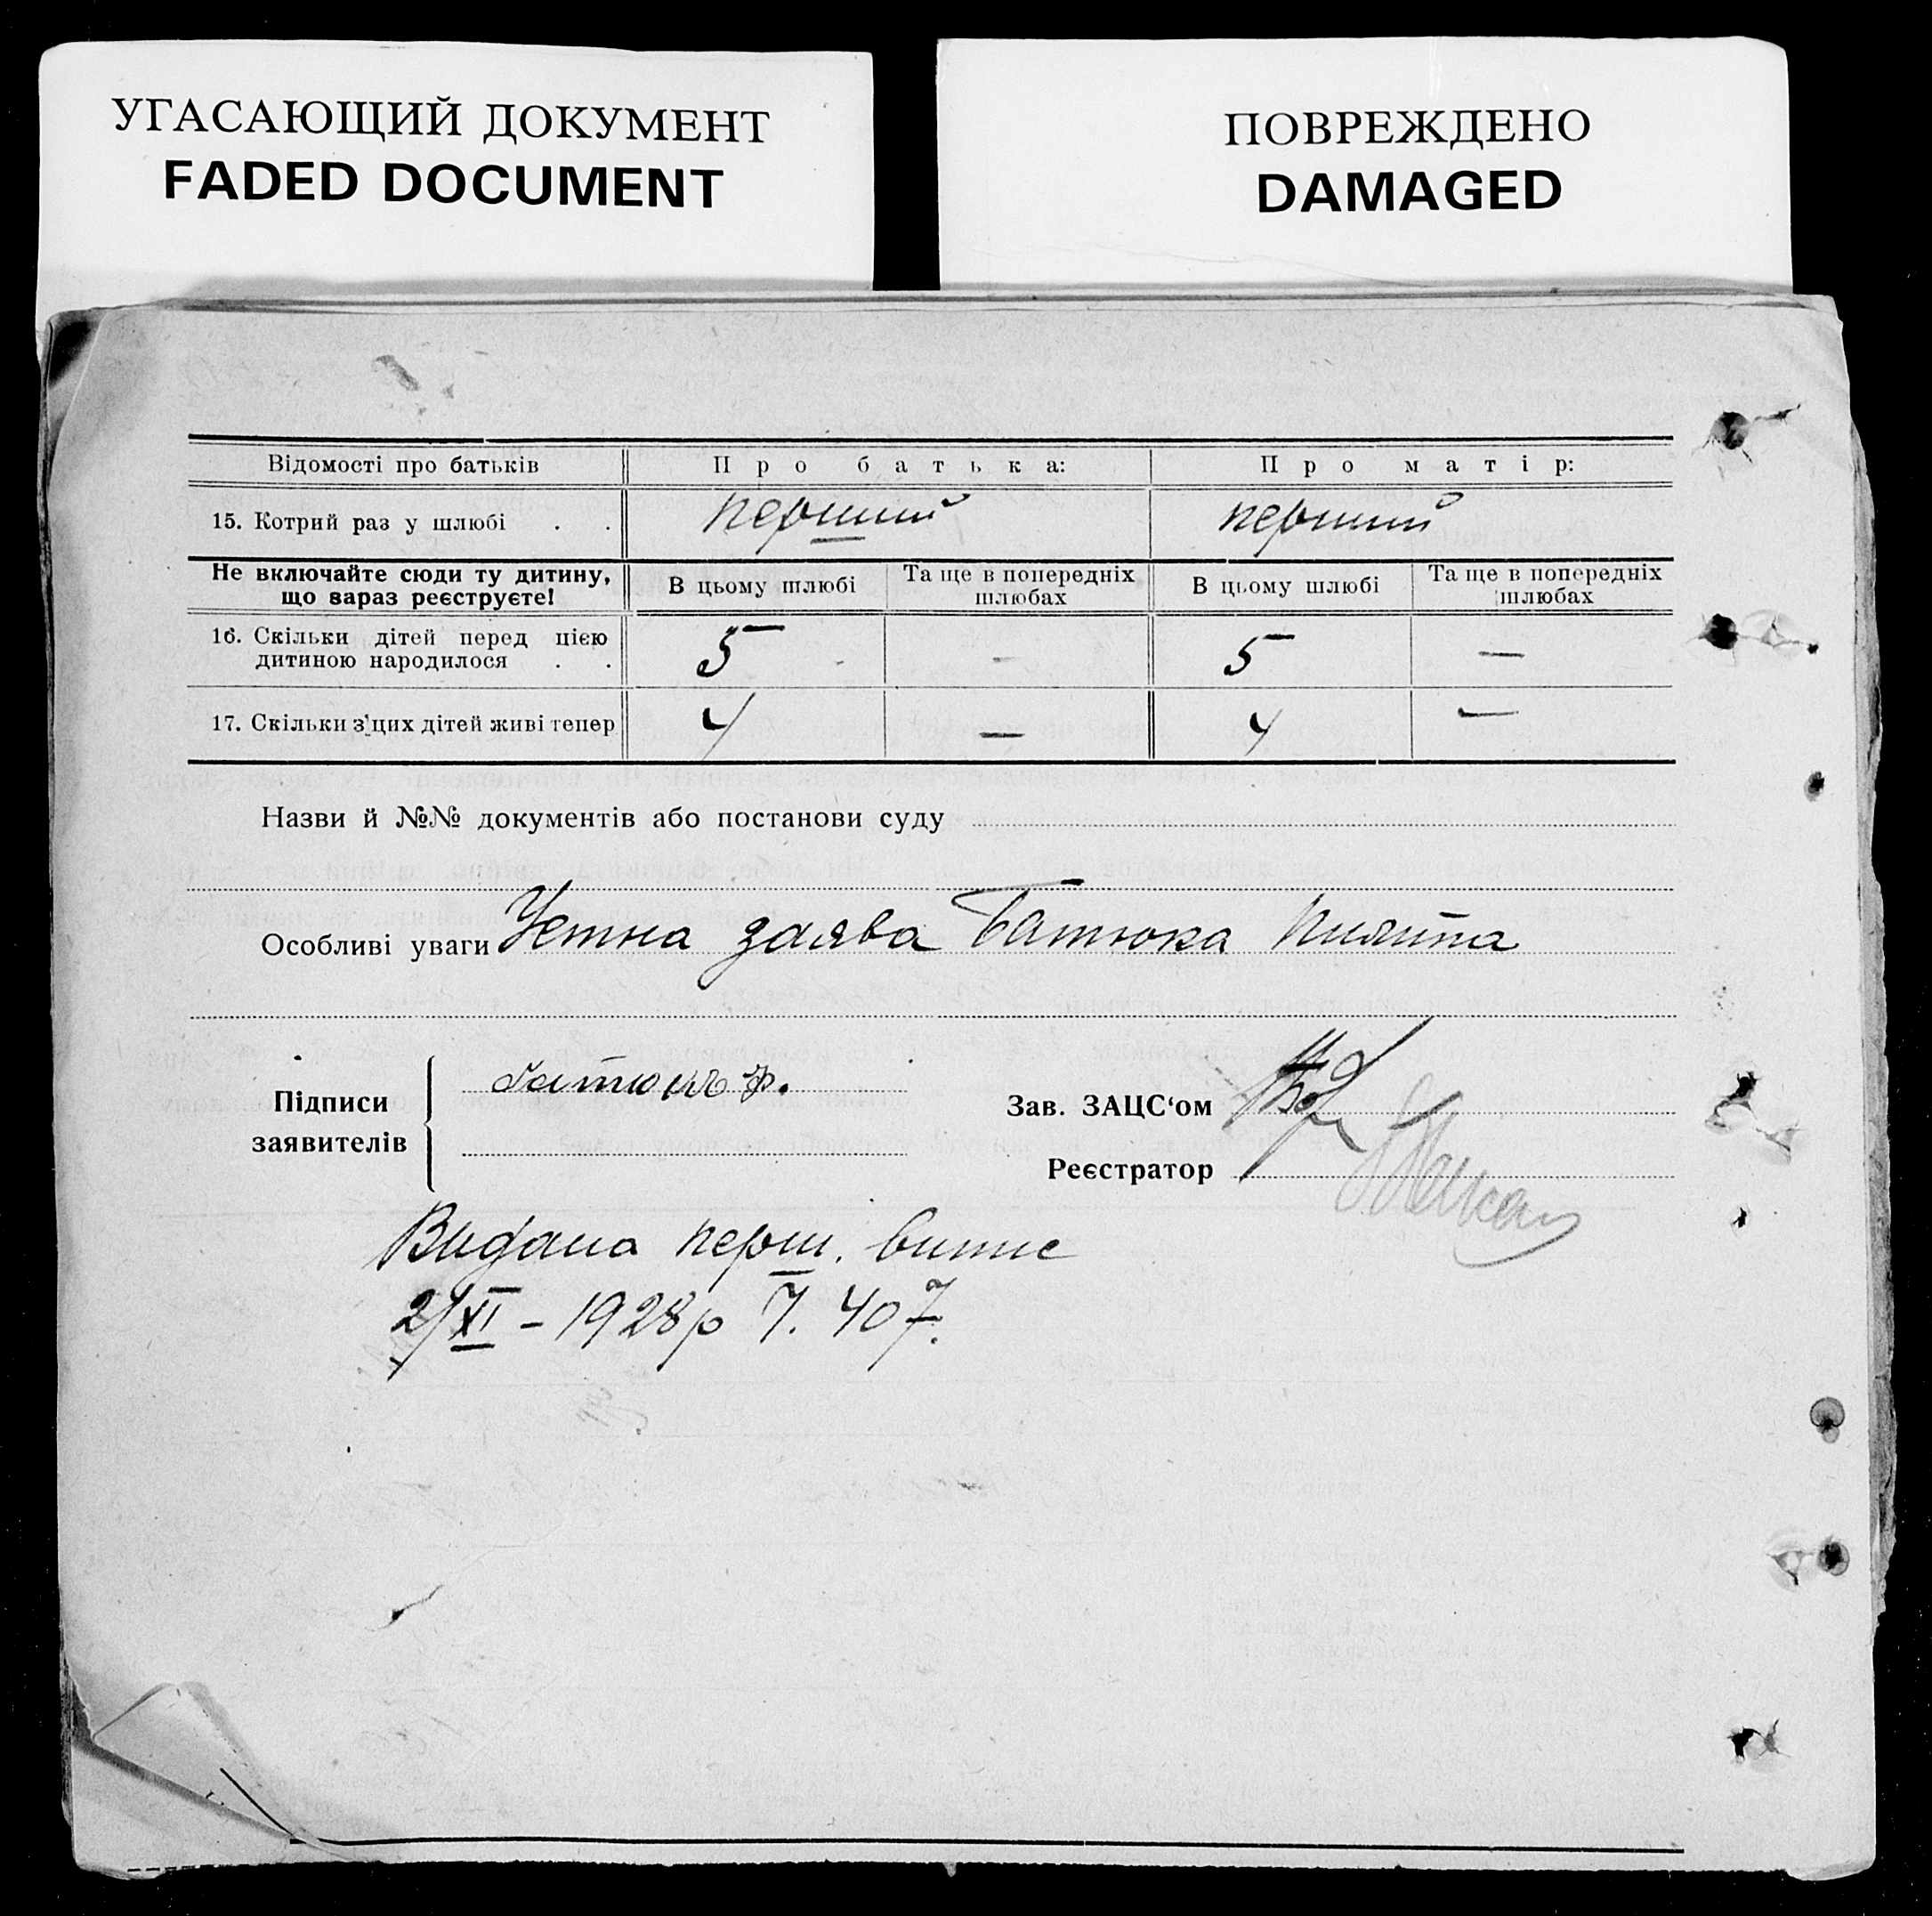 УГАСАЮЩИЙ ДОКУМЕНТ
FADED DOCUMENT
ПОВРЕЖДЕНО
DAMAGED
Відомості про батьків Про батька: Про матір:
15. Котрий раз у шлюбі . . перший перший
Не включайте сюди ту дитину, що зараз реєструєте! В цьому шлюбі Та ще в попередніх шлюбах В цьому шлюбі Та ще в попередніх шлюбах
16. Скільки дітей перед цією
дитиною народилося . . 5 - 5 —
17. Скільки з'цих дітей живі тепер 4 — 4 —
Назви й №№ документів або постанови суду
Особливі уваги Устна заява Батюка
Підписи
заявителів
Батюкъ Ф.
Зав. ЗАЦС‘ом
Реєстратор
Видана перш. випис
2/XI - 1928 р Ч. 407.